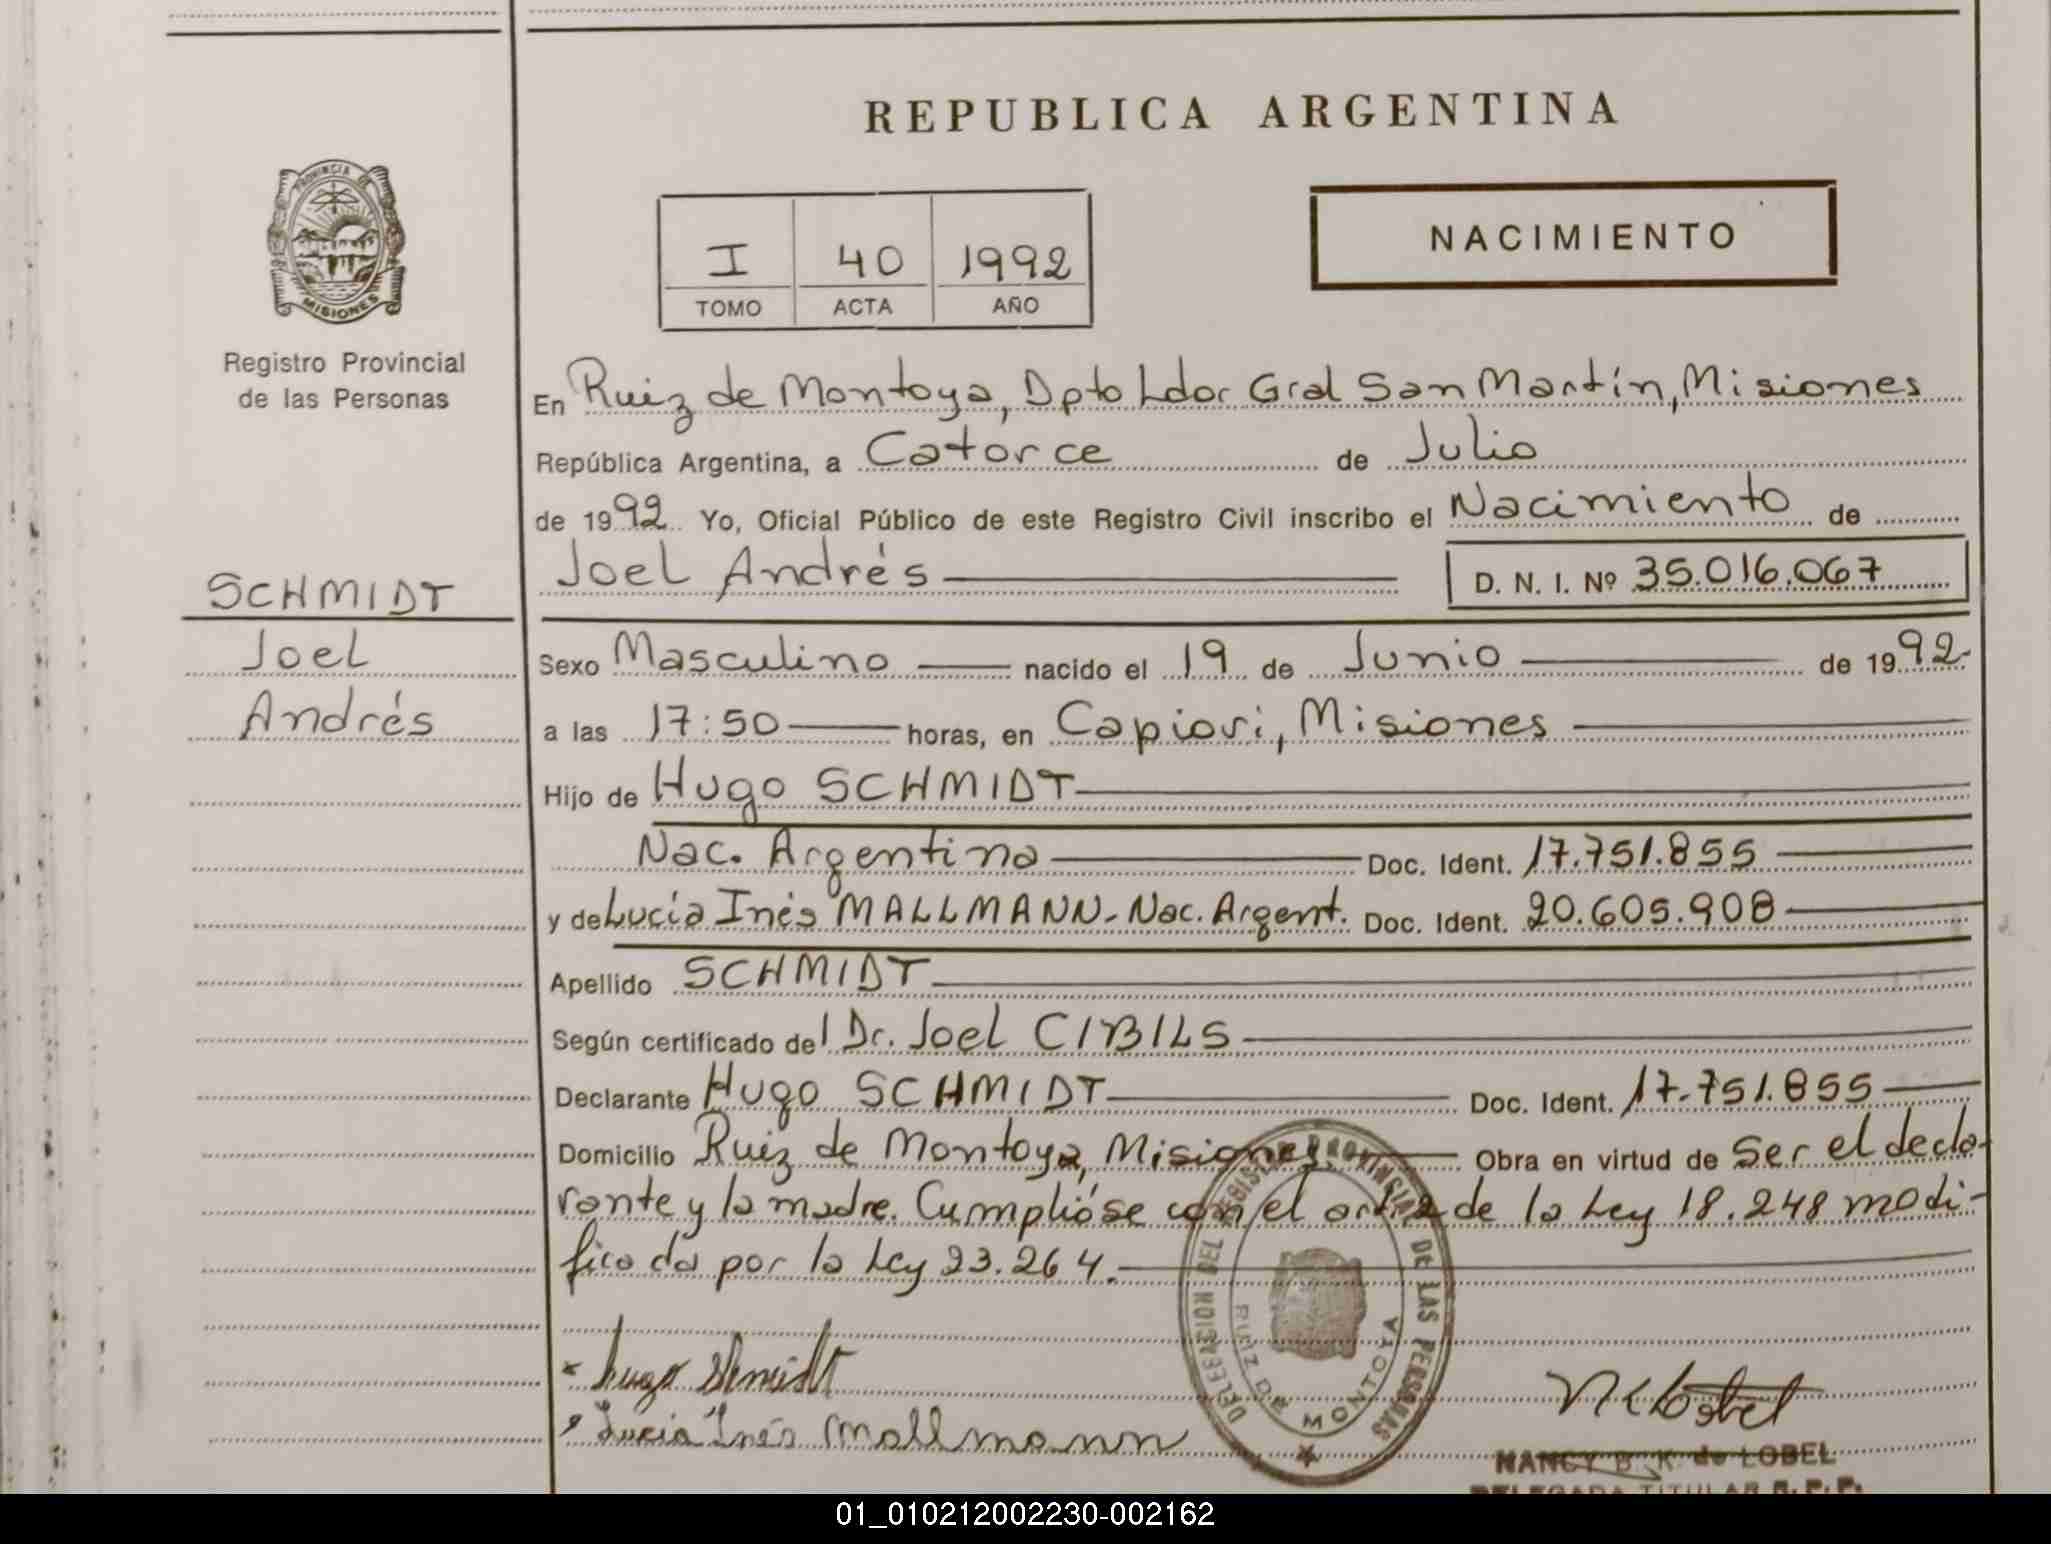 REPUBLICA ARGENTINA
PROVINCIA DE
MISIONES
Registro Provincial
de las Personas
I 40 1992
TOMO ACTA AÑO
NACIMIENTO
En Ruiz de Montoya, Dpto Ldor Gral San Martín, Misiones
República Argentina, a Catorce de Julio
de 1992 Yo, Oficial Público de este Registro Civil inscribo el Nacimiento de
Joel Andrés D. N. I. Nº 35.016.067
SCHMIDT
Joel
Andrés
Sexo Masculino nacido el 19 de Junio de 1992
a las 17:50 horas, en Capiovi, Misiones
Hijo de Hugo SCHMIDT
Nac. Argentina Doc. Ident. 17.751.855
y de Lucía Inés MALLMANN - Nac. Argent. Doc. Ident. 20.605.908
Apellido SCHMIDT
Según certificado del Dr. Joel CIBILS
Declarante Hugo SCHMIDT Doc. Ident. 17.751.855
Domicilio Ruiz de Montoya, Misiones Obra en virtud de Ser el decla-
rante y la madre. Cumplióse con el art. 2 de la Ley 18.248 modi-
ficada por la Ley 23.264.
Hugo Schmidt
Lucia Inés Mallmann
DELEGACION DEL REGISTRO PROVINCIAL DE LAS PERSONAS
RUIZ DE MONTOYA
NANCY B. K. de LOBEL
DELEGADA TITULAR R. P. P.
01_010212002230-002162